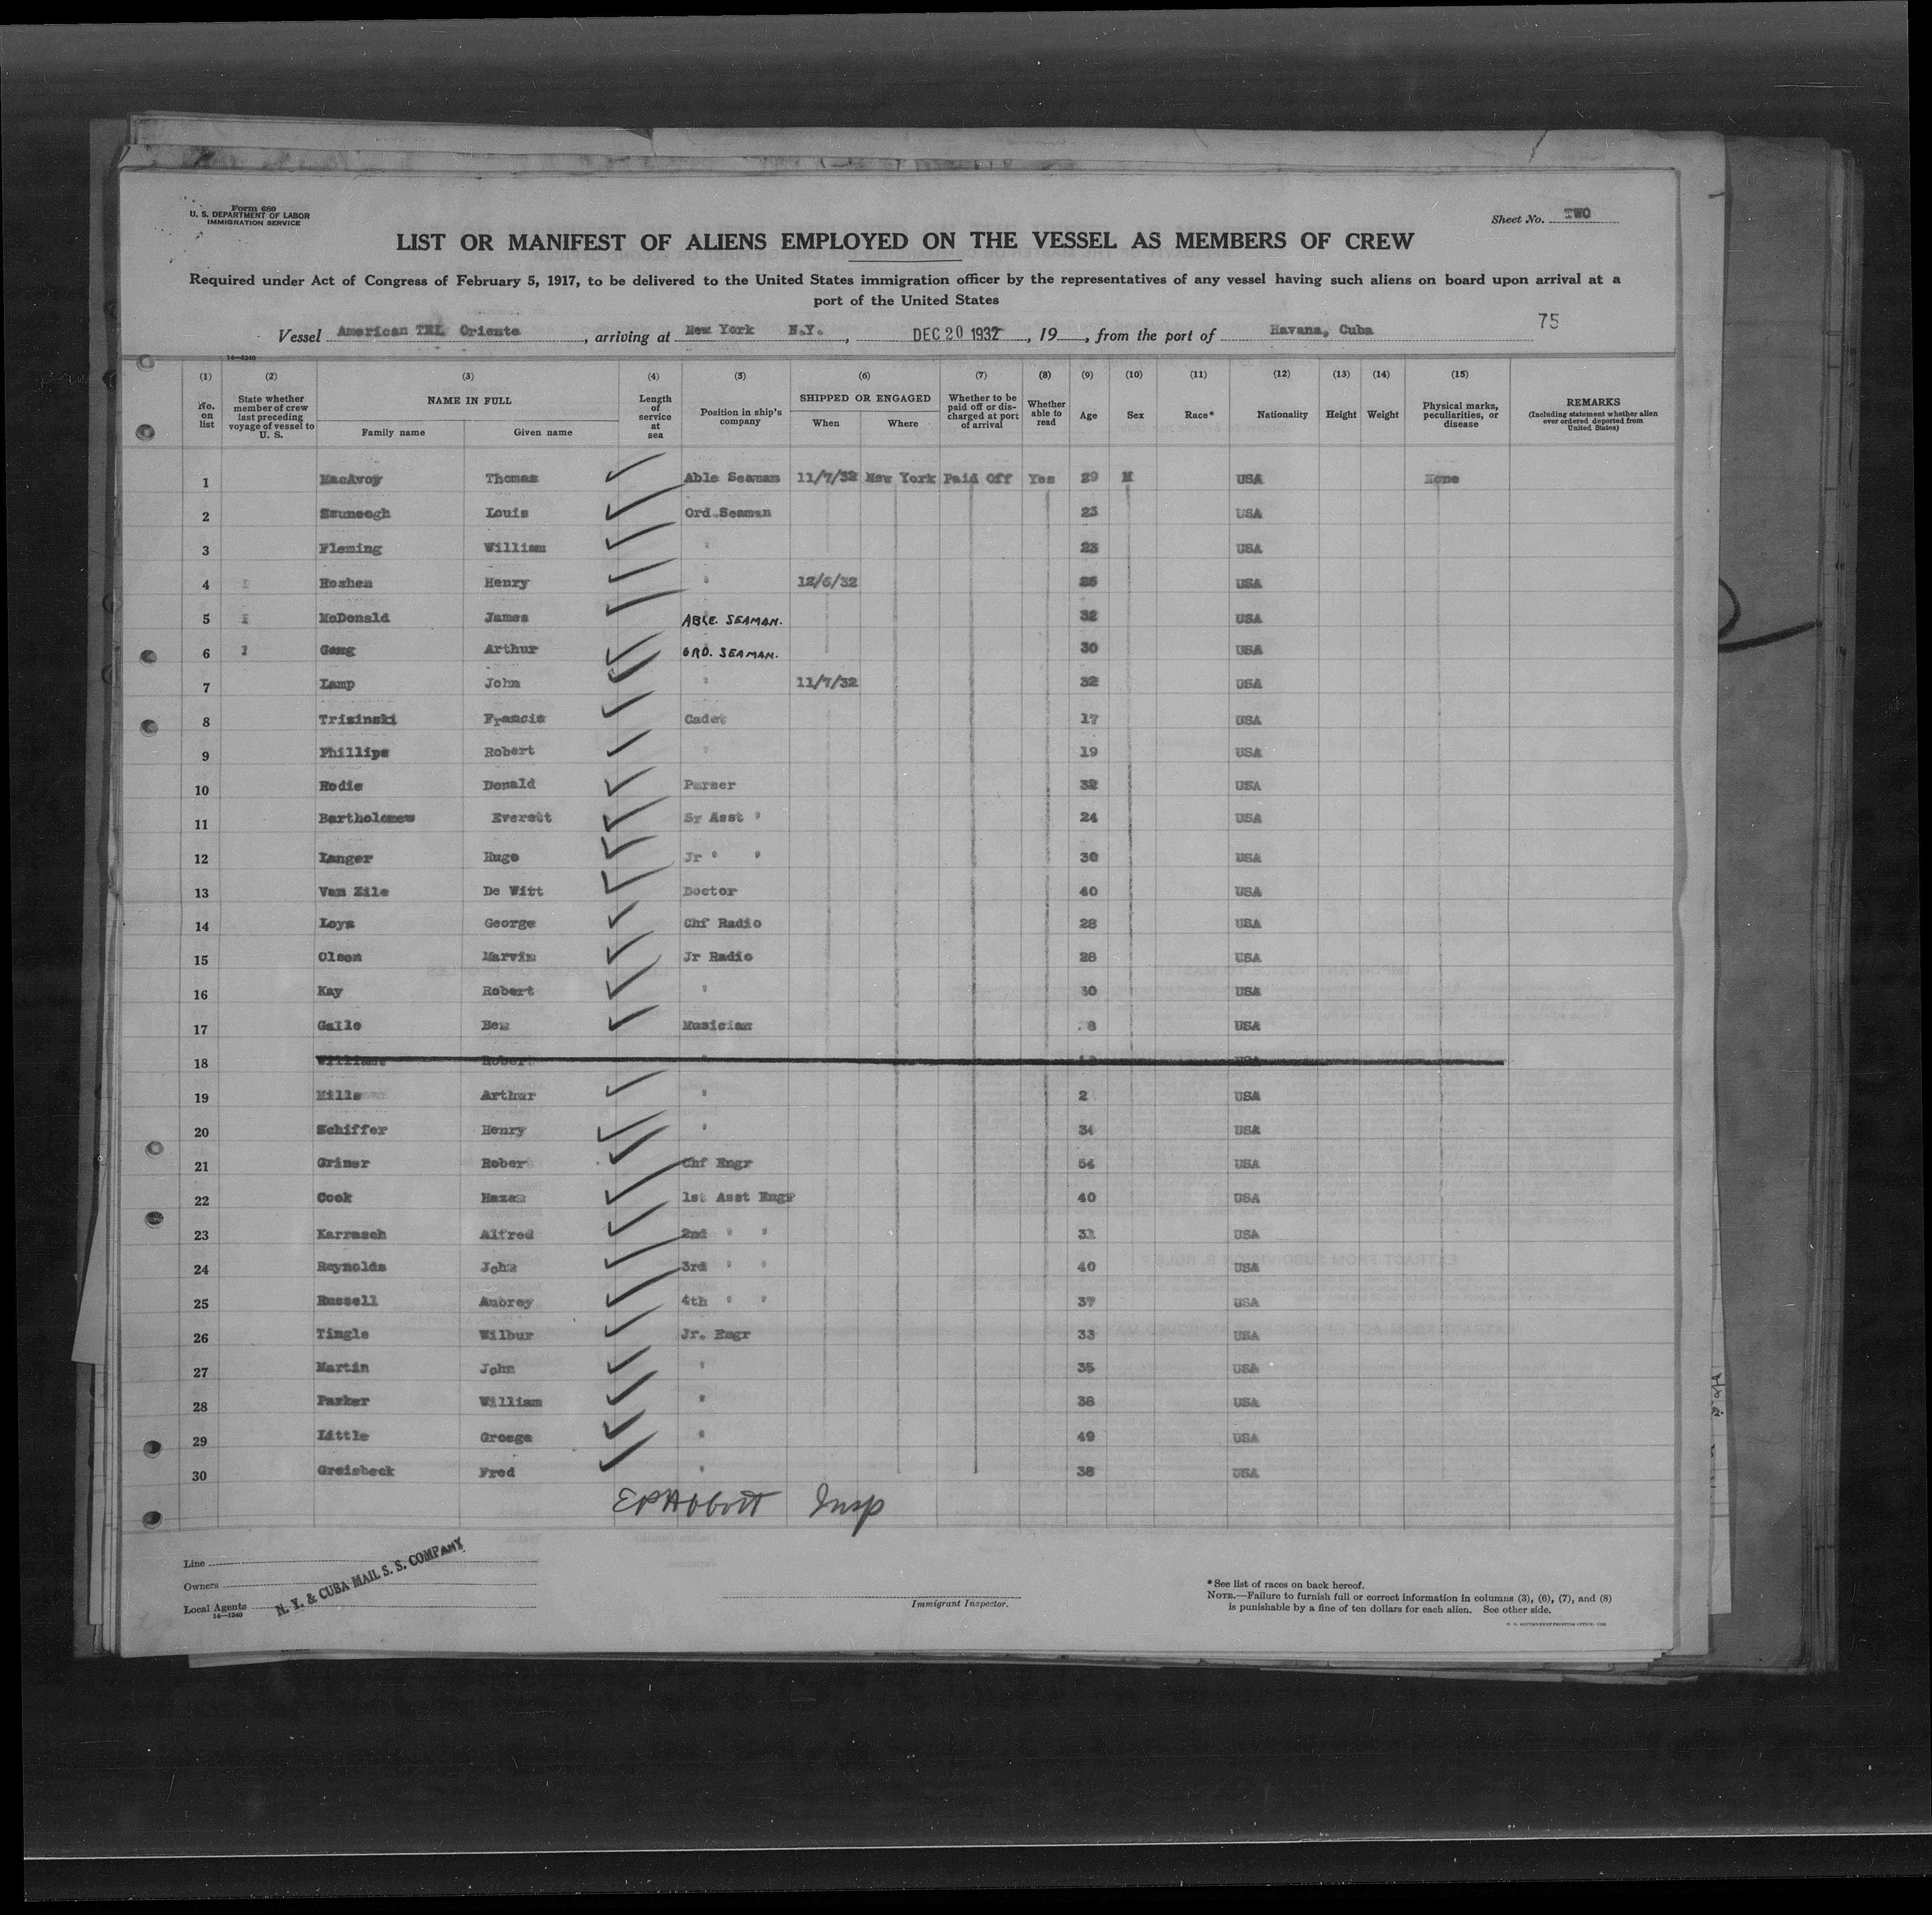 Form 680
U. S. DEPARTMENT OF LABOR
IMMIGRATION SERVICE
Sheet No. TWO
LIST OR MANIFEST OF ALIENS EMPLOYED ON THE VESSEL AS MEMBERS OF CREW
Required under Act of Congress of February 5, 1917, to be delivered to the United States immigration officer by the representatives of any vessel having such aliens on board upon arrival at a
port of the United States
75
Vessel American TEL Oriente, arriving at New York N.Y., DEC 20 1932, 19, from the port of Havana, Cuba
14—1240
(1) (2) (3) (4) (5) (6) (7) (8) (9) (10) (11) (12) (13) (14) (15)
No. on list
State whether member of crew last preceding voyage of vessel to U. S.
NAME IN FULL
Family name Given name
Length of service at sea
Position in ship's company
SHIPPED OR ENGAGED
When Where
Whether to be paid off or discharged at port of arrival
Whether able to read
Age Sex Race* Nationality Height Weight
Physical marks, peculiarities, or disease
REMARKS
(Including statement whether alien ever ordered deported from United States)
1 MacAvoy Thomas Able Seaman 11/7/32 New York Paid Off Yes 29 M USA None
2 Louis Ord.Seaman 23 USA
3 Fleming William " 23 USA
4 Hoshen Henry " 12/6/32 USA
5 McDonald James ABLE. SEAMAN. 32 USA
6 Arthur ORD. SEAMAN. 30 USA
7 Lamp John " 11/7/32 32 USA
8 Trizinski Francis Cadet 17 USA
9 Phillips Robert " 19 USA
10 Rodie Donald Purser 32 USA
11 Bartholomew Everett Sr Asst " 24 USA
12 Langer Hugo Jr " " 30 USA
13 Van Zile De Witt Doctor 40 USA
14 Loys George Chf Radio 28 USA
15 Olson Marvin Jr Radio 28 USA
16 Kay Robert " 30 USA
17 Gallo Ben Musician 8 USA
18 Williams Robert " USA
19 Mills Arthur " 2 USA
20 Schiffer Henry " 34 USA
21 Griner Rober Chf Engr 54 USA
22 Cook Hazen 1st Asst Engr 40 USA
23 Karrasch Alfred 2nd " " USA
24 Reynolds John 3rd " " 40 USA
25 Russell Aubrey 4th " " 37 USA
26 Tingle Wilbur Jr. Engr 33 USA
27 Martin John " 35 USA
28 Parker William " 38 USA
29 Little Groege " 49 USA
30 Greisbeck Fred " 38 USA
EPAbbott Insp
Line
Owners
Local Agents
14—1240
N. Y. & CUBA MAIL S. S. COMPANY
Immigrant Inspector.
* See list of races on back hereof.
NOTE.—Failure to furnish full or correct information in columns (3), (6), (7), and (8)
is punishable by a fine of ten dollars for each alien. See other side.